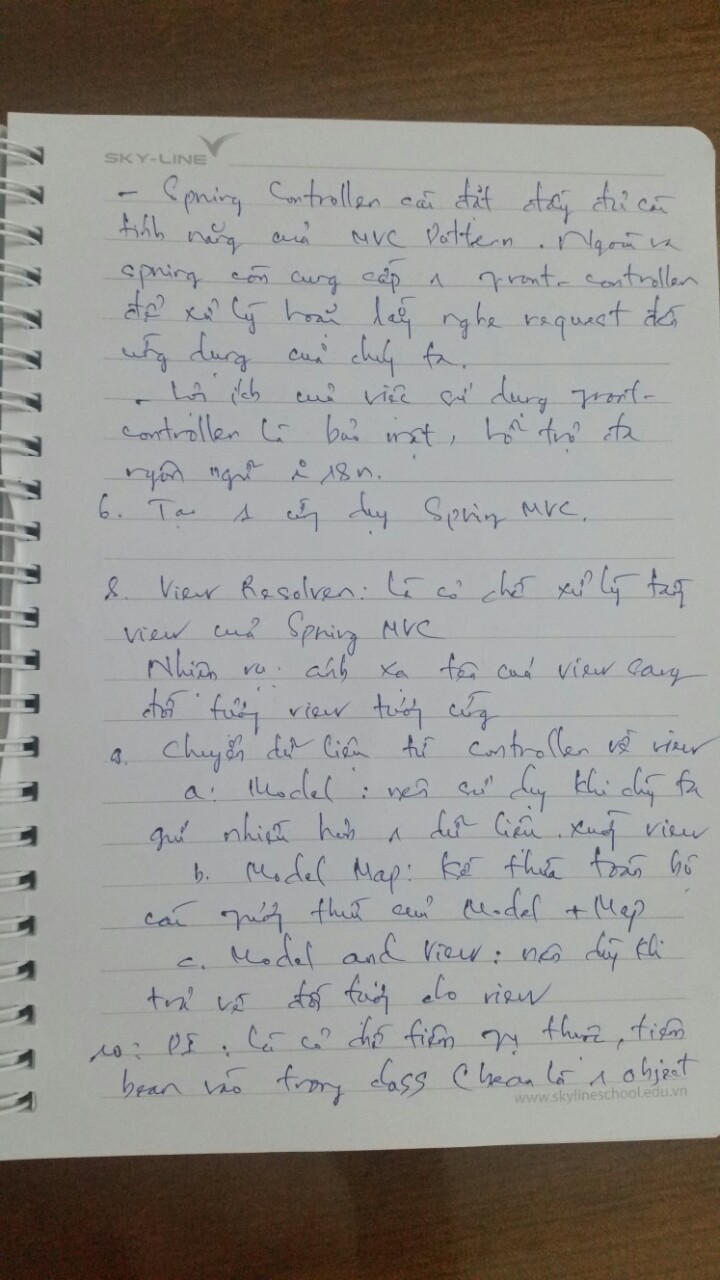 SKY-LINE
- Spring Controller cài đặt đầy đủ các
tính năng của MVC Pattern. Ngoài ra
spring còn cung cấp 1 front-controller
để xử lý hoặc lắng nghe request đến
ứng dụng của chúng ta.
- Lợi ích của việc sử dụng front-
controller là bảo mật, hỗ trợ đa
ngôn ngữ i18n.
6. Tạo 1 ứng dụng Spring MVC.
8. View Resolver: là cơ chế xử lý tầng
view của Spring MVC
Nhiệm vụ: ánh xạ tên của view sang
đối tượng view tương ứng
9. Chuyển dữ liệu từ controller về view
a: Model: nên sử dụng khi chúng ta
gửi nhiều hơn 1 dữ liệu xuống view
b. Model Map: kế thừa toàn bộ
các phương thức của Model + Map
c. Model and View: nên dùng khi
trả về đối tượng cho view
10: DI: là cơ chế tiêm phụ thuộc, tiêm
bean vào trong class (bean là 1 object
www.skylineschool.edu.vn